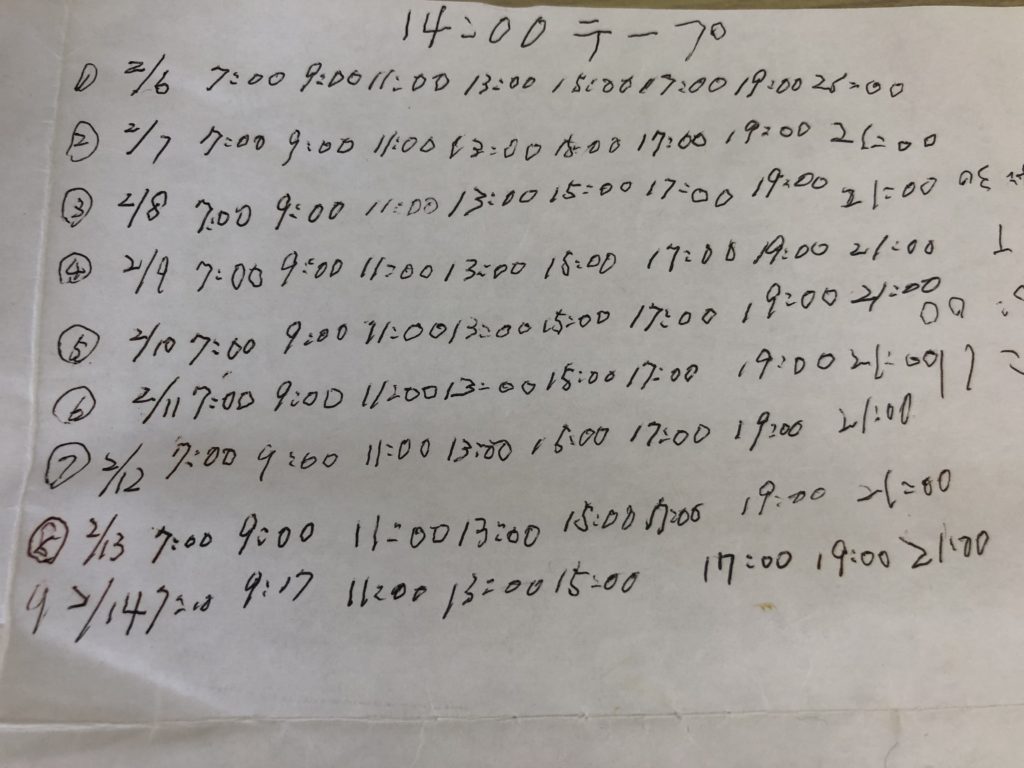 14:00 テープ
① 2/6 7:00 9:00 11:00 13:00 15:00 17:00 19:00 21:00
② 2/7 7:00 9:00 11:00 13:00 15:00 17:00 19:00 21:00
③ 2/8 7:00 9:00 11:00 13:00 15:00 17:00 19:00 21:00
④ 2/9 7:00 9:00 11:00 13:00 15:00 17:00 19:00 21:00
⑤ 2/10 7:00 9:00 11:00 13:00 15:00 17:00 19:00 21:00
⑥ 2/11 7:00 9:00 11:00 13:00 15:00 17:00 19:00 21:00
⑦ 2/12 7:00 9:00 11:00 13:00 15:00 17:00 19:00 21:00
⑧ 2/13 7:00 9:00 11:00 13:00 15:00 17:00 19:00 21:00
9 2/14 7:10 9:17 11:00 13:00 15:00 17:00 19:00 21:00